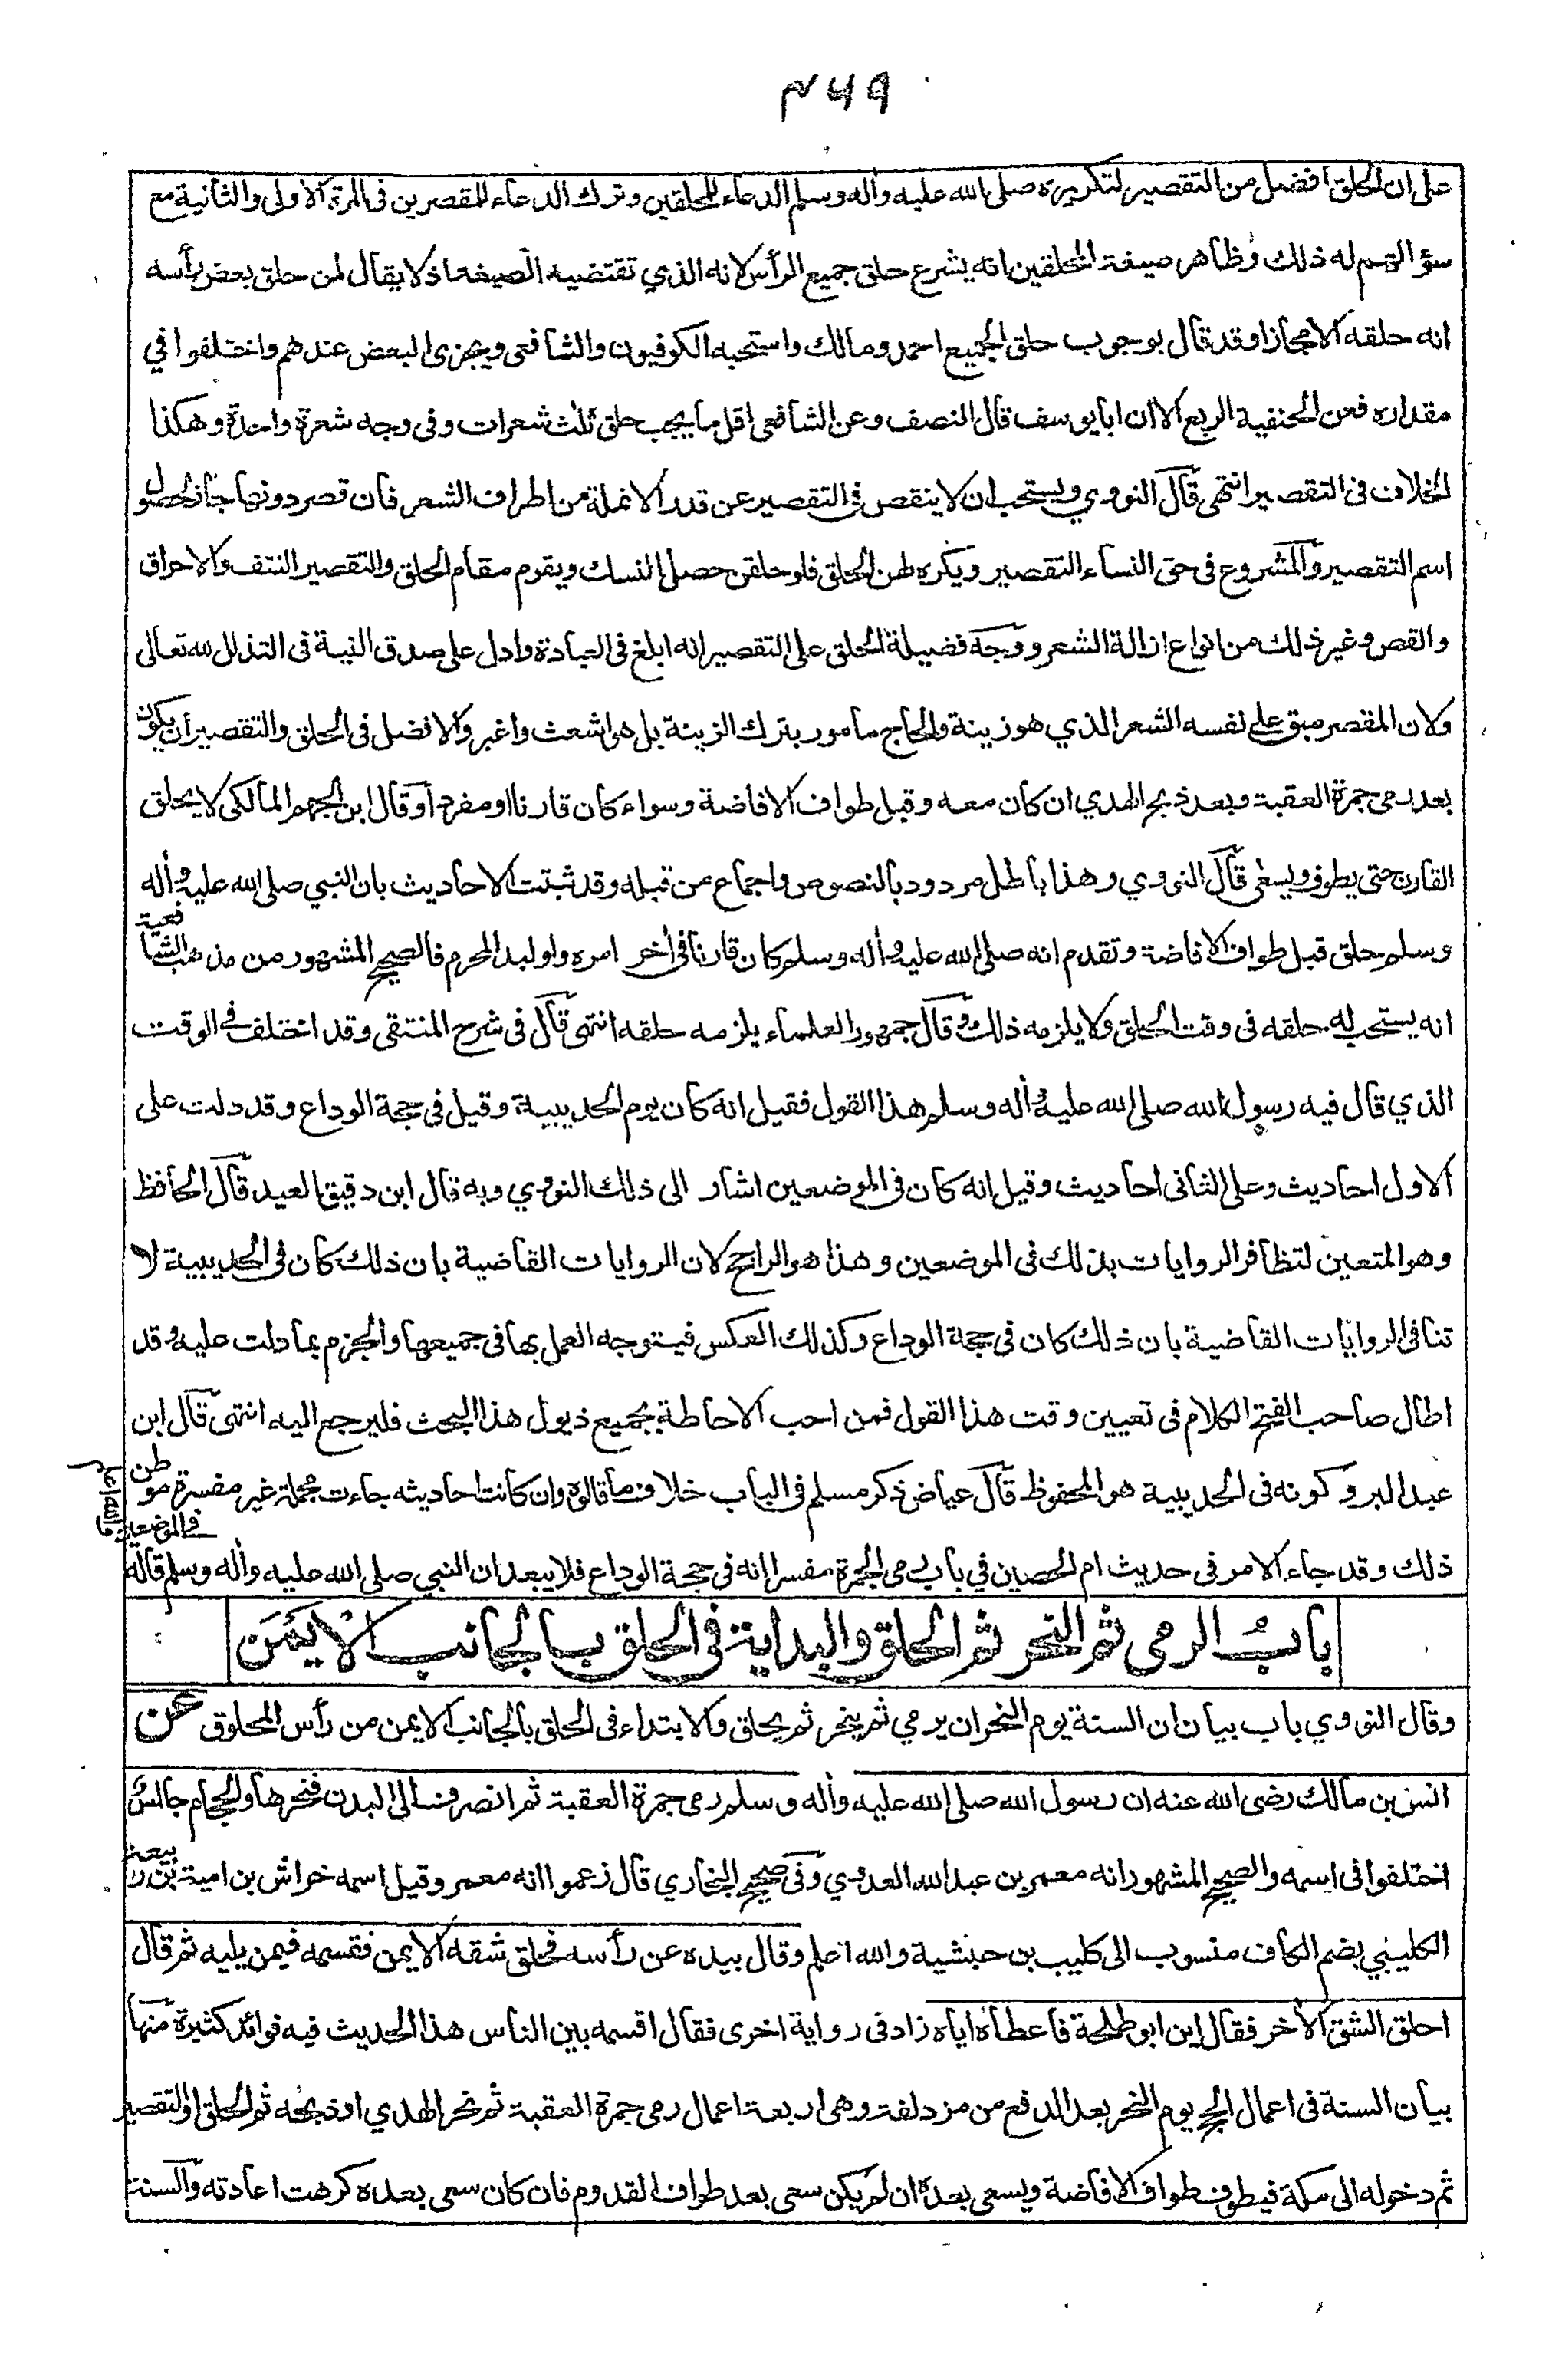 ٤٦٩
على ان الحلق افضل من التقصير لتكريره صلى الله عليه وأله وسلم الدعاء للمحلقين وترك الدعاء للمقصرين فى المرة الاولى والثانية مع
سؤالهم له ذلك وظاهر صيغة المحلقين انه يشرع حلق جميع الرأس لانه الذي تقتضيه الصيغة اذ لا يقال لمن حلق بعض رأسه
انه حلقه الا مجازا وقد قال بوجوب حلق الجميع احمد ومالك واستحبه الكوفيون والشافعى ويجزى البعض عندهم واختلفوا في
مقداره فعن الحنفية الربع الا ان ابا يوسف قال النصف وعن الشافعى اقل ما يجب حلق ثلث شعرات وفى وجه شعرة واحدة وهكذا
الخلاف فى التقصير انتهى قال النووي ويستحب ان لا ينقص فى التقصير عن قدر الانملة من اطراف الشعر فان قصر دونها جاز لحصول
اسم التقصير والمشروع فى حق النساء التقصير ويكره لهن الحلق فلو حلقن حصل النسك ويقوم مقام الحلق والتقصير النتف والاحراق
والقص وغير ذلك من انواع ازالة الشعر ووجه فضيلة الحلق على التقصير انه ابلغ فى العبادة وادل على صدق النية فى التذلل لله تعالى
ولان المقصر مبق على نفسه الشعر الذي هو زينة والحاج مامور بترك الزينة بل هو اشعث واغبر والافضل فى الحلق والتقصير ان يكون
بعد رمى جمرة العقبة وبعد ذبح الهدي ان كان معه وقبل طواف الافاضة وسواء كان قارنا او مفردا وقال ابن الجهم المالكى لا يحلق
القارن حتى يطوف ويسعى قال النووي وهذا باطل مردود بالنصوص واجماع من قبله وقد ثبتت الاحاديث بان النبي صلى الله عليه وأله
وسلم حلق قبل طواف الافاضة وتقدم انه صلى الله عليه وأله وسلم كان قارنا فى أخر امره ولو لبد المحرم فالصحيح المشهور من مذهب الشافعية
انه يستحب له حلقه فى وقت الحلق ولا يلزمه ذلك وقال جمهور العلماء يلزمه حلقه انتهى قال فى شرح المنتقى وقد اختلف فى الوقت
الذي قال فيه رسول الله صلى الله عليه وأله وسلم هذا القول فقيل انه كان يوم الحديبية وقيل فى حجة الوداع وقد دلت على
الاول احاديث وعلى الثانى احاديث وقيل انه كان فى الموضعين اشار الى ذلك النووي وبه قال ابن دقيق العيد قال الحافظ
وهو المتعين لتظافر الروايات بذلك فى الموضعين وهذا هو الراجح لان الروايات القاضية بان ذلك كان فى الحديبية لا
تنافى الروايات القاضية بان ذلك كان فى حجة الوداع وكذلك العكس فيتوجه العمل بها فى جميعها والجزم بما دلت عليه وقد
اطال صاحب الفتح الكلام فى تعيين وقت هذا القول فمن احب الاحاطة بجميع ذيول هذا البحث فليرجع اليه انتهى قال ابن
عبد البر وكونه فى الحديبية هو المحفوظ قال عياض ذكر مسلم فى الباب خلاف ما قالوه وان كانت احاديثه جاءت مجملة غير مفسرة موطن
ذلك وقد جاء الامر فى حديث ام الحصين في باب رمى الجمرة مفسرا انه فى حجة الوداع فلا يبعد ان النبي صلى الله عليه وأله وسلم قاله
فى الموضعين والله اعلم
باب الرمى ثم النحر ثم الحلق والبداية فى الحلق بالجانب الايمن
وقال النووي باب بيان ان السنة يوم النحر ان يرمي ثم ينحر ثم يحلق والابتداء فى الحلق بالجانب الايمن من رأس المحلوق عن
انس بن مالك رضى الله عنه ان رسول الله صلى الله عليه وأله وسلم رمى جمرة العقبة ثم انصرف الى البدن فنحرها والحجام جالس
اختلفوا فى اسمه والصحيح المشهور انه معمر بن عبد الله العدوي وفى صحيح البخاري قال زعموا انه معمر وقيل اسمه خراش بن امية بن ربيعة
الكليبي بضم الكاف منسوب الى كليب بن حبشية والله اعلم وقال بيده عن رأسه فحلق شقه الايمن فقسمه فيمن يليه ثم قال
احلق الشق الأخر فقال اين ابو طلحة فاعطاه اياه زاد فى رواية اخرى فقال اقسمه بين الناس هذا الحديث فيه فوائد كثيرة منها
بيان السنة فى اعمال الحج يوم النحر بعد الدفع من مزدلفة وهى اربعة اعمال رمى جمرة العقبة ثم نحر الهدي او ذبحه ثم الحلق او التقصير
ثم دخوله الى مكة فيطوف طواف الافاضة ويسعى بعده ان لم يكن سعى بعد طواف القدوم فان كان سعى بعده كرهت اعادته والسنة